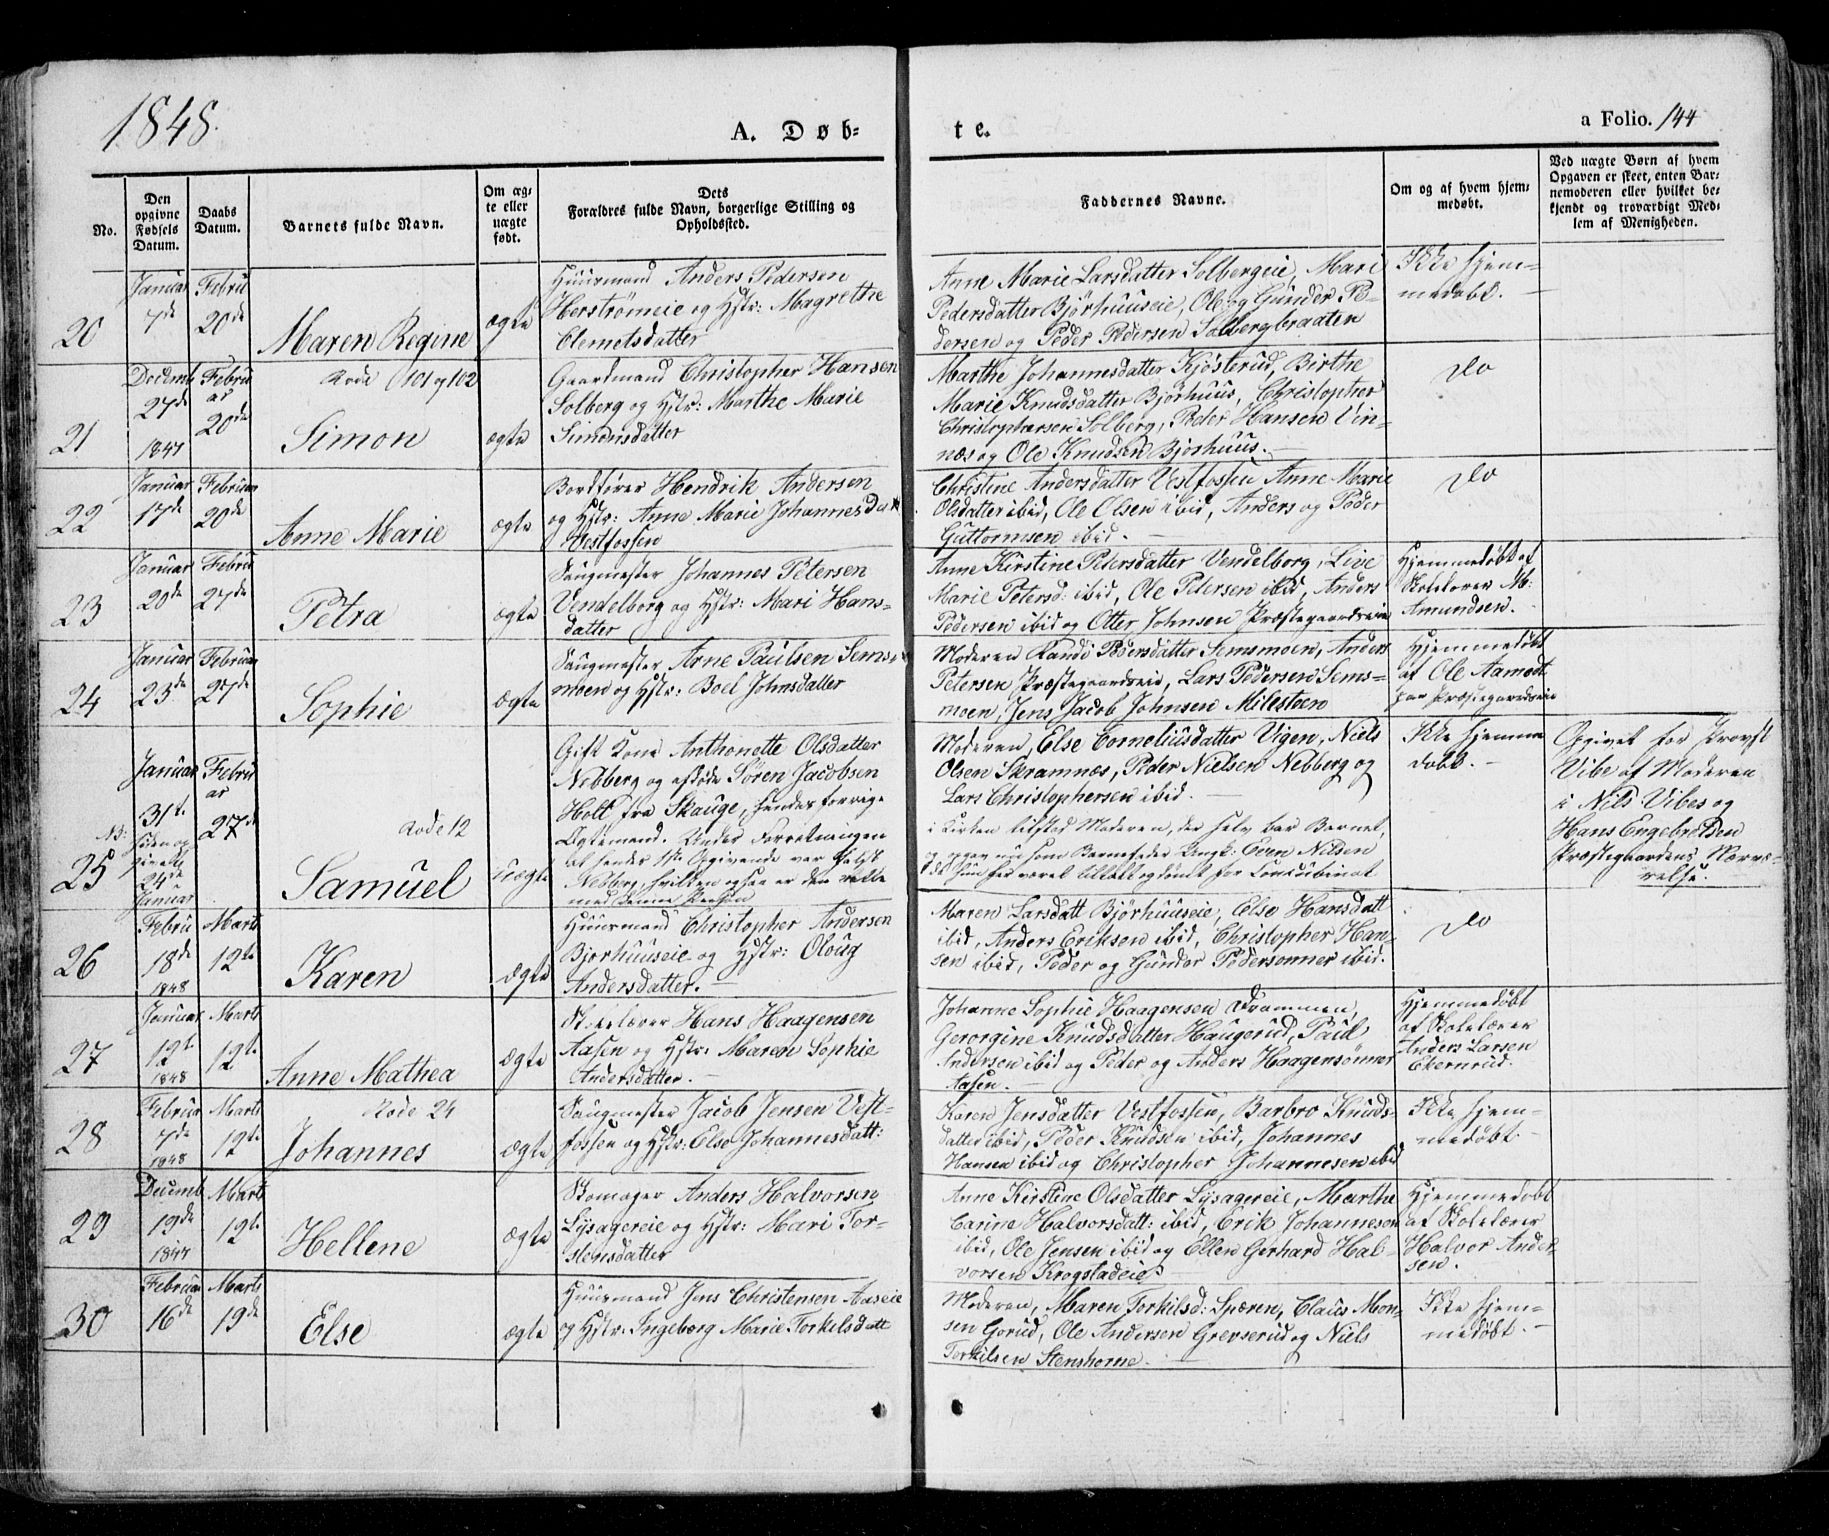 1848.
A. Døb-
te.
a Folio. 144
No.
Den
opgivne
Fødsels
Datum.
Daabs
Datum.
Barnets fulde Navn.
Om æg-
te eller
uægte
født.
Dets
Forældres fulde Navn, borgerlige Stilling og
Opholdssted.
Faddernes Navne.
Om og af hvem hjem-
medøbt.
Ved uægte Børn af hvem
Opgaven er skeet, enten Bar-
nemoderen eller hvilket be-
kjendt og troværdigt Med-
lem af Menigheden.
20
Januar
7de
Febru
20de
Maren Regine
ægte
Huusmand Anders Pedersen
Herstrømeie og Hstr: Magrethe
Clemetsdatter
Anne Marie Larsdatter Solbergeie, Mari
Pedersdatter Bjørhuuseie, Ole og Gunder Pe-
dersen og Peder Pedersen Solbergbraaten
Ikke hjem-
medøbt.
21
Decemb
27de
1847
Febru
ar
20de
Rode 101 og 102
Simon
ægte
Gaardmand Christopher Hansen
Solberg og Hstr: Marthe Marie
Simonsdatter
Marthe Johannesdatter Kjøsterud, Birthe
Marie Knudsdatter Bjørhuus, Christopher
Christophersen Solberg, Peder Hansen Vin-
næs og Ole Knudsen Bjørhuus.
Do
22
Januar
17de
Februar
20de
Anne Marie
ægte
Bordfører Hendrik Andersen
og Hstr: Anne Marie Johannesdatt
Vestfossen
Christine Andersdatter Vestfossen Anne Marie
Olsdatter ibid, Ole Olsen ibid, Anders og Peder
Guttormsen ibid.
Do
23
Januar
20de
Febru
27de
Petra
ægte
Saugmester Johannes Petersen
Vendelborg og Hstr: Mari Hans-
datter
Anne Kirstine Petersdatter Vendelborg, Live
Marie Petersd: ibid, Ole Petersen ibid, Anders
Pedersen ibid og Otter Johnsen Præstegaardseie
Hjemmedøbt af
Skolelærer M:
Amundsen.
24
Januar
23de
Februar
27de
Sophie
ægte
Saugmester Arne Paulsen Sems-
moen og Hstr: Boel Johnsdatter
Moderen Randi Pedersdatter Semsmoen, Anders
Petersen Præstegaardseie, Lars Pedersen Sems-
moen, Jens Jacob Johnsen Milesteen
Hjemmedøbt
af Ole Aamodt
paa Præstegaardseie
25
Januar
31te
24de
Januar
Febru
ar
27de
Rode 12
Samuel
uægte
Gift Kone Anthonette Olsdatter
Nedberg og afdøde Søren Jacobsen
Holt fra Skauge, hendes forrige
Ægtemand. Under Forretningen
at hendes 1ste Opgivende var falsk
Nedberg, hvilken ogsaa er den rette
med denne Person
Moderen, Else Corneliusdatter Vigen, Niels
Olsen Skramnæs, Peder Nielsen Nedberg og
Lars Christophersen ibid.
i Kirken tilstod Moderen, der selv bar Barnet,
og opgav nu som Barnefader Ungk: Even Nilsen
Hun har været tiltalt og dømt for Concubinat
Ikke hjemme
døbt.
Opgivet for Provst
Vibe af Moderen
i Nils Vibes og
Hans Engebretsen
Præstegaardens Nærvæ-
relse.
26
Febru
18de
1848
Marts
12te
Karen
ægte
Huusmand Christopher Andersen
Bjørhuuseie og Hstr: Oloug
Andersdatter.
Maren Larsdatt Bjørhuuseie, Else Hansdatt
ibid, Anders Eriksen ibid, Christopher Han-
sen ibid, Peder og Gunder Pedersønner ibid.
Do
27
Januar
12te
1848
Marts
12te
Anne Mathea
ægte
Skolelærer Hans Haagensen
Aasen og Hstr: Maren Sophie
Andersdatter.
Johanne Sophie Haagensen Drammen,
Gerorgine Knudsdatter Haugerud, Paul
Andersen ibid og Peder og Anders Haagensønner
Aasen.
Hjemmedøbt
af Skolelærer
Anders Larsen
Ekernrud.
28
Februar
7de
1848
Marts
12te
Rode 24
Johannes
ægte
Saugmester Jacob Jensen Vest-
fossen og Hstr: Else Johannesdatt:
Karen Jensdatter Vestfossen, Barbro Knuds-
datter ibid, Peder Knudsen ibid, Johannes
Hansen ibid og Christopher Johannesen ibid
Ikke hjem-
medøbt
29
Decemb
19de
1847
Marts
12te
Hellene
ægte
Skomager Anders Halvorsen
Lysagereie og Hstr: Mari Tor-
stensdatter
Anne Kirstine Olsdatter Lysagereie, Marthe
Carine Halvorsdatt: ibid, Erik Johannesen
ibid, Ole Jensen ibid og Ellen Gerhard Hal-
vorsen Krogstadeie
Hjemmedøbt
af Skolelærer
Halvor Ander-
sen.
30
Februar
16de
Marts
19de
Else
ægte
Huusmand Jens Christensen Aaseie
og Hstr: Ingeborg Marie Torkelsdatt
Moderen, Maren Torkilsd: Spæren, Claus Mon-
sen Gorud, Ole Andersen Grevserud og Niels
Torkilsen Stenshorne.
Ikke hjem-
medøbt.